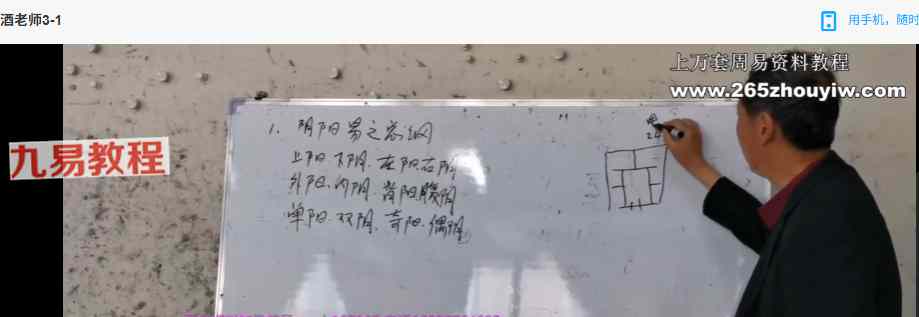 酒老师3-1
用手机，随时
上万套周易资料教程
www.265zhouyiw.com
九易教程
1、阴阳易之总纲
上阳.下阴.左阳.右阴
外阳.内阴.背阳.腹阴
单阳.双阴.奇阳.偶阴